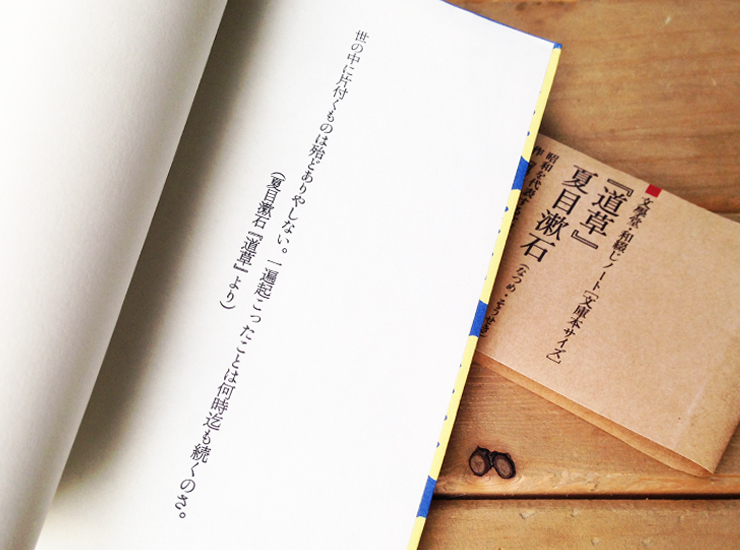 世の中に片付くものは殆どありやしない。一遍起こったことは何時迄も続くのさ。
(夏目漱石『道草』より)
文庫堂 和綴じノート[文庫本サイズ]
『道草』
夏目漱石(なつめ・そうせき)
昭和を代表する